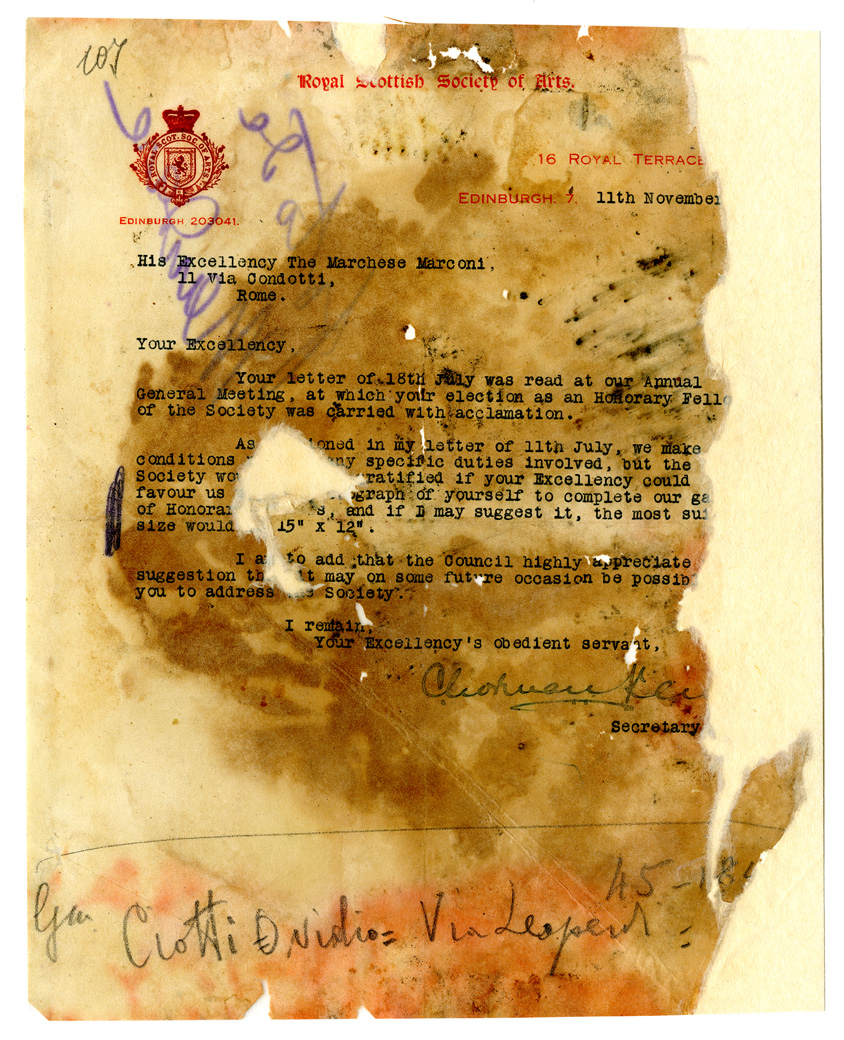 107
Royal Scottish Society of Arts.
ROYAL SCOT. SOC. OF ARTS
16 ROYAL TERRACE
EDINBURGH. 7. 11th November
EDINBURGH 203041.
His Excellency The Marchese Marconi,
11 Via Condotti,
Rome.
Your Excellency,
Your letter of 18th July was read at our Annual
General Meeting, at which your election as an Honorary Fell
of the Society was carried with acclamation.
As ioned in my letter of 11th July, we make
conditions ny specific duties involved, but the
Society wou ratified if your Excellency could
favour us ograph of yourself to complete our ga
of Honorar s, and if I may suggest it, the most sui
size would 15" x 12".
I am to add that the Council highly appreciate
suggestion th it may on some future occasion be possib
you to address the Society.
I remain,
Your Excellency's obedient servant,
Secretary
45-18
Ciotti Ovidio = Via Leopardi =